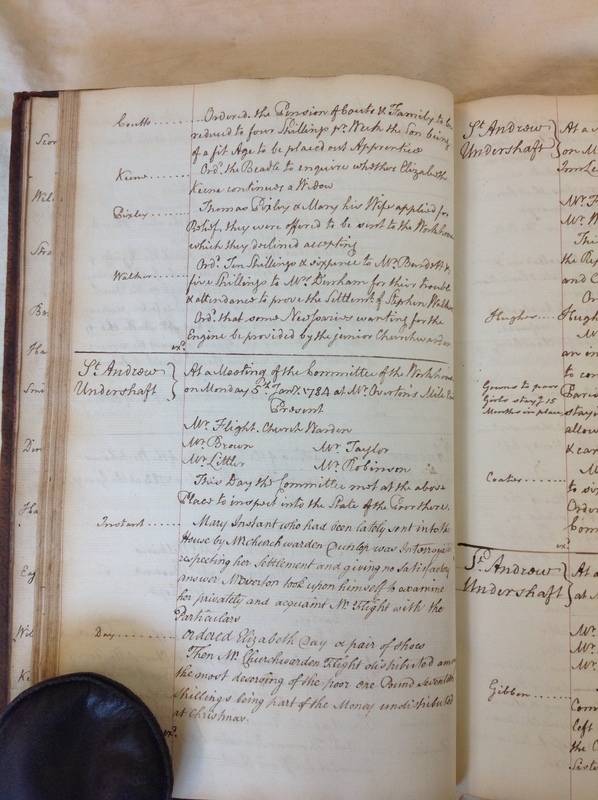 Coutts ........ Ordered. the Pension of Coutts & Family to be
reduced to four Shillings pr. Week the Son being
of a fit Age to be placed out Apprentice
Keene ........ Ordd. the Beadle to enquire whether Elizabeth
Keene continues a Widow
Pixley ........ Thomas Pixley & Mary his Wife applied for
Relief, they were offered to be sent to the Workhouse
which they declined accepting
Walker ........ Ordd. Ten Shillings & sixpence to Mr. Burdett &
five Shillings to Mr. Durham for their trouble
& attendance to prove the Settlemt. of Stephen Walker
Ordd. that some Necessaries wanting for the
Engine be provided by the junior Churchwarden
exd.
St. Andrew
Undershaft
At a Meeting of the Committee of the Workhouse
on Monday 5th Jany. 1784 at Mr. Overton's Mile End
Present
Mr. Flight. Church Warden
Mr. Brown Mr. Taylor
Mr. Littler Mr. Robinson
This Day the Committee met at the above
Place to inspect into the State of the Poor there.
Instant ........ Mary Instant who had been lately sent into the
House by Mr. Churchwarden Dunlop was
respecting her Settlement and giving no satisfactory
answer Mr. Overton took upon himself to examine
her privately and acquaint Mr. Flight with the
Particulars
Day ........ Ordered Elizabeth Day a pair of shoes
Then Mr. Churchwarden Flight distributed
the most deserving of the poor one Pound seventeen
shillings being part of the Money undistributed
at Christmas.
exd.
St. Andrew
Undershaft
At a
on M
Mr. F
Mr. W
Thi
the Re
and C
Or
Hughes .... Hugh
M
an in
to con
Gowns to poor
Girls stayg. 15
Months in place
Paris
stayi
allow
& car
M
Coates ....
to si
Order
Com
exd.
St. Andrew
Undershaft
At a
at M
Mr.
Mr.
Mr.
Gibbon ....
Com
left
the C
Siste